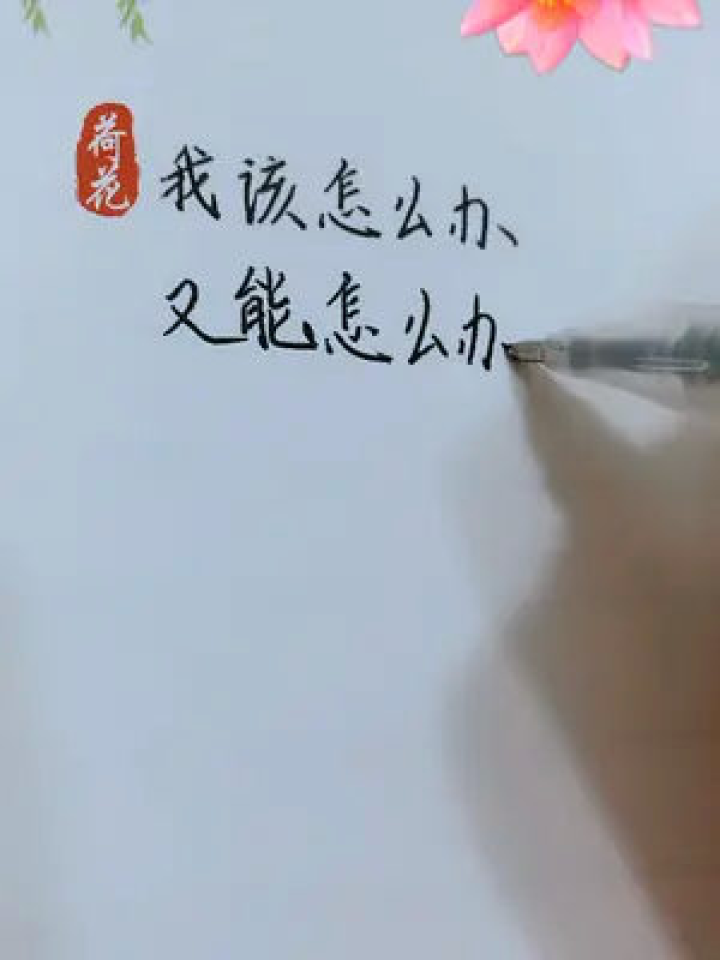 荷花
我该怎么办、
又能怎么办、